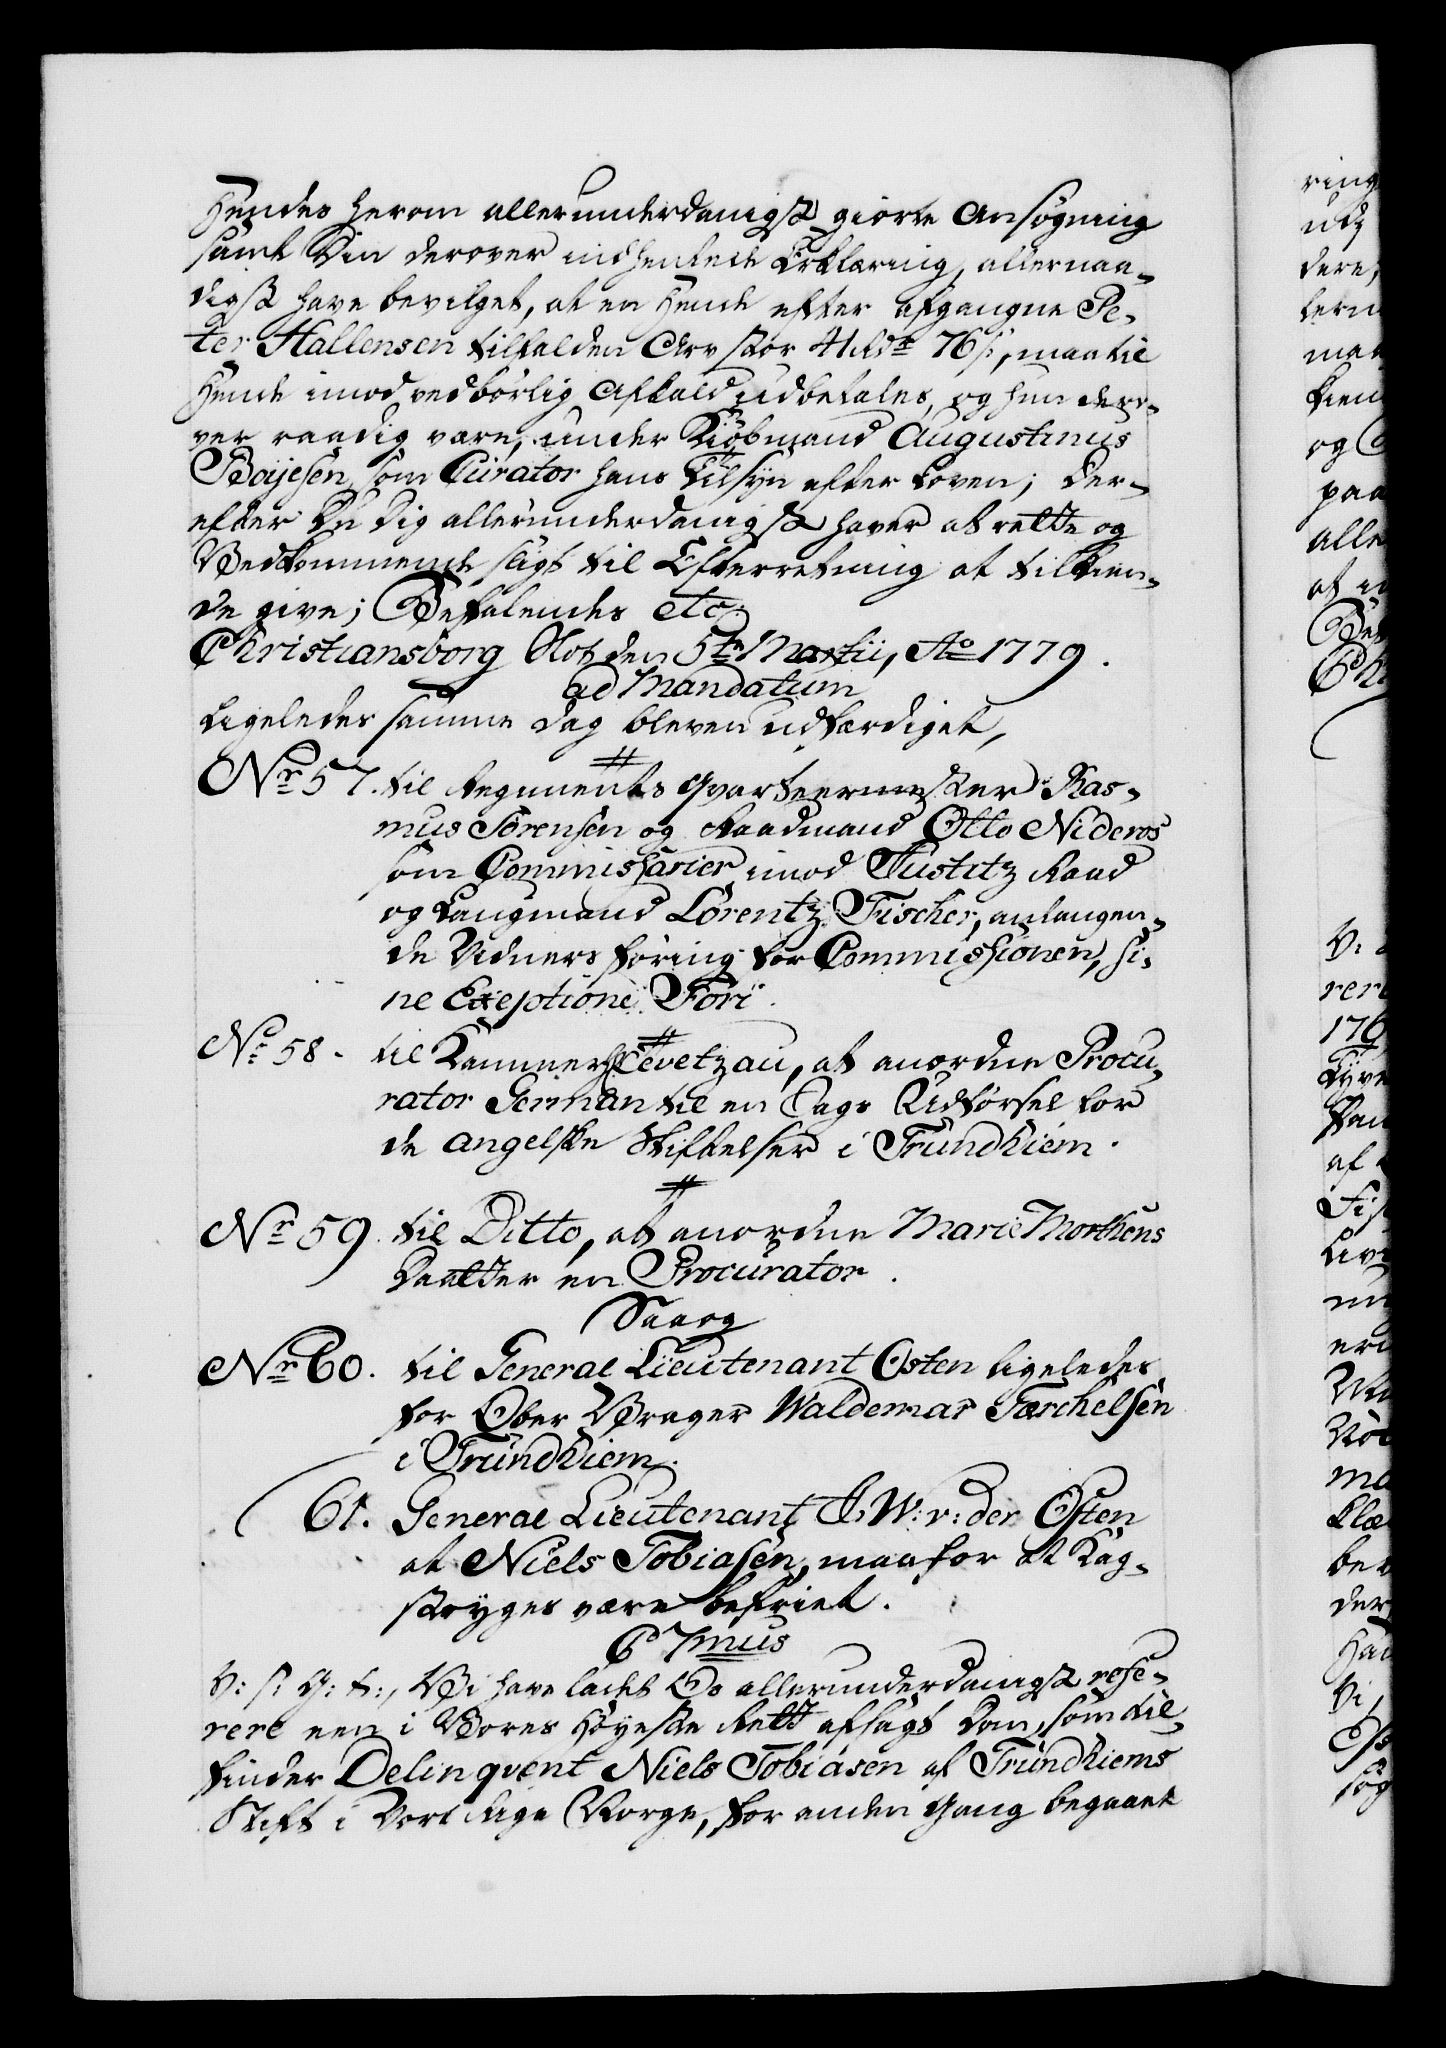 Hendes herom allerunderdanigst giorte Ansøgning
samt Din derover indhentede Erklæring, allernaa-
digst have bevilget, at en Hende efter afgangne Pe-
ter Hallensen tilfalden Arv stor 41 rdr 76 s, maa til
Hende imod vedbørlig Afkald udbetales, og hun dero-
ver raadig være, under Kiøbmand Augustinus
Boyesen, som Curator hans Tilsyn efter Loven; Der-
efter Du dig allerunderdanigst haver at rette og
Vedkommende sligt til Efterretning at tilkien-
de give; Befalendes etc.
Christiansborg Slot den 5te Martii, Ao 1779.
ad Mandatum
Ligeledes samme Dag bleven udfærdiget,
Nr 57. til Regiments Qvarteermester Ras-
mus Sørensen og Raadmand Otto Nideros
som Commissarier imod Justitz Raad
og Laugmand Lorentz Fischer, anlangen-
de Vidners føring for Commissionen, si-
ne Exeptione Fori.
No 58. til Kammerh: Levetzau, at anordne Procu-
rator German til en Sags Udførsel for
de angelske Stiftelser i Trundhiem.
Nr 59. til Ditto, at anordne Marie Morthens
Daatter en Procurator.
Saaog
Nr 60. til General Lieutenant Osten ligeledes
for Ober Vrager Waldemar Færchelsen
i Trundhiem.
61. General Lieutenant J. W: v: der Osten
at Niels Tobiasen, maa for at Kag-
stryges være befriet.
C 7mus
V: s: G: t:, Vi have ladet Os allerunderdanigst refe-
rere een i Vores Høyeste Rett afsagt Dom, som til-
finder Delinqvent Niels Tobiasen af Trundhiems
Stift i Vort Rige Norge, for anden Gang begaaet